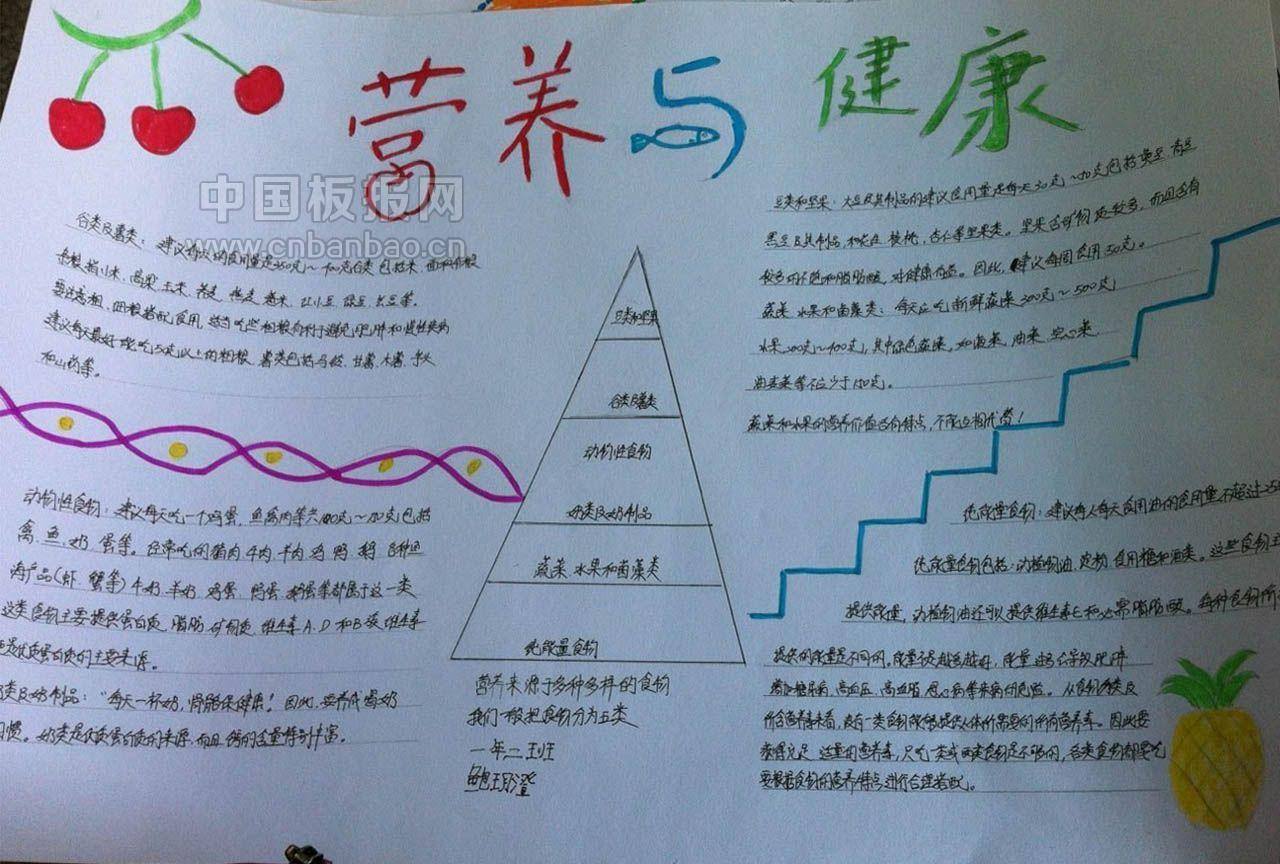 营养与健康
中国板报网
www.cnbanbao.cn
谷类及薯类：建议每人的食用量是250克～400克谷类 包括米、面和杂粮
杂粮指小米、高粱、玉米、荞麦、燕麦、薏米、红小豆、绿豆、芸豆等。
要注意粗、细粮搭配食用，适当吃些粗粮有利于避免肥胖和慢性疾病
建议每天最好能吃50克以上的粗粮。薯类包括马铃、甘薯、木薯、芋头
和山药等。
动物性食物：建议每天吃一个鸡蛋，鱼禽肉等共100克～150克包括
禽、鱼、奶、蛋等。经常吃的猪肉、牛肉、羊肉、鸡、鸭、鹅
海产品(虾、蟹等)牛奶、羊奶、鸡蛋、鸭蛋、鹅蛋等都属于这一类
这类食物主要提供蛋白质、脂肪、矿物质、维生素A、D和B族维生素
也是优质蛋白质的主要来源。
类及奶制品：“每天一杯奶，骨骼保健康！因此，要养成喝奶
习惯。奶类是优质蛋白质的来源，而且钙的含量特别丰富。
豆类和坚果
谷类及薯类
动物性食物
奶类及奶制品
蔬菜、水果和菌藻类
纯能量食物
营养来源于多种多样的食物
我们一般把食物分为五类
一年二班
鲍玥澄
豆类和坚果：大豆及其制品的建议食用量是每天30克～50克包括黄豆、青豆
黑豆及其制品，和花生、核桃、杏仁等坚果类。坚果含矿物质较多，而且含有
较多的不饱和脂肪酸，对健康有益。因此，建议每周食用50克。
蔬菜、水果和菌藻类：每天应吃新鲜蔬菜300克～500克
水果200克～400克，其中绿色蔬菜，如菠菜、油菜、空心菜、
油麦菜等不应少于150克。
蔬菜和水果的营养价值各有特点，不能互相代替！
纯能量食物：建议每人每天食用油的食用量不超过25
纯能量食物包括：动植物油、淀粉、食用糖和酒类。这些食物主
提供能量，动植物油还可以提供维生素E和必需脂肪酸。每种食物所
提供的能量是不同的，能量不是越多越好，能量过多会导致肥胖
增加糖尿病、高血压、高血脂、冠心病等疾病的危险。从食物种类及
所含营养素来看，没有一类食物能够提供人体所需要的所有营养素。因此要
获得充足、适量的营养素，只吃一类或两类食物是不够的，各类食物都要吃
要根据食物的营养特点进行合理搭配。